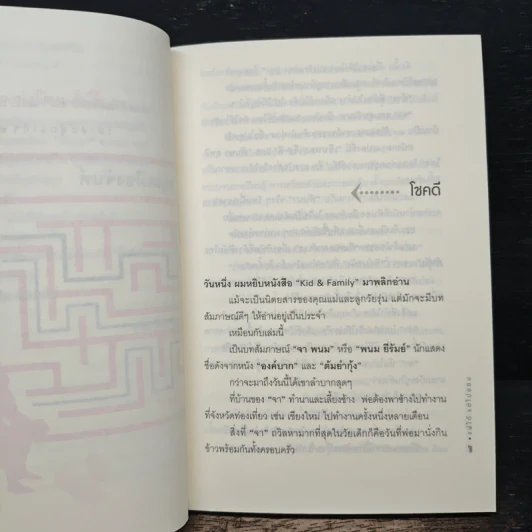 โชคดี
วันหนึ่ง ผมหยิบหนังสือ "Kid & Family" มาพลิกอ่าน
แม้จะเป็นนิตยสารของคุณแม่และลูกวัยรุ่น แต่มักจะมีบท
สัมภาษณ์ดีๆ ให้อ่านอยู่เป็นประจำ
เหมือนกับเล่มนี้
เป็นบทสัมภาษณ์ "จา พนม" หรือ "พนม ยีรัมย์" นักแสดง
ชื่อดังจากหนัง "องค์บาก" และ "ต้มยำกุ้ง"
กว่าจะมาถึงวันนี้ได้เขาลำบากสุดๆ
ที่บ้านของ "จา" ทำนาและเลี้ยงช้าง พ่อต้องพาช้างไปทำงาน
ที่จังหวัดท่องเที่ยว เช่น เชียงใหม่ ไปทำงานครั้งหนึ่งหลายเดือน
สิ่งที่ "จา" ถวิลหามากที่สุดในวัยเด็กก็คือวันที่พ่อมานั่งกิน
ข้าวพร้อมกันทั้งครอบครัว